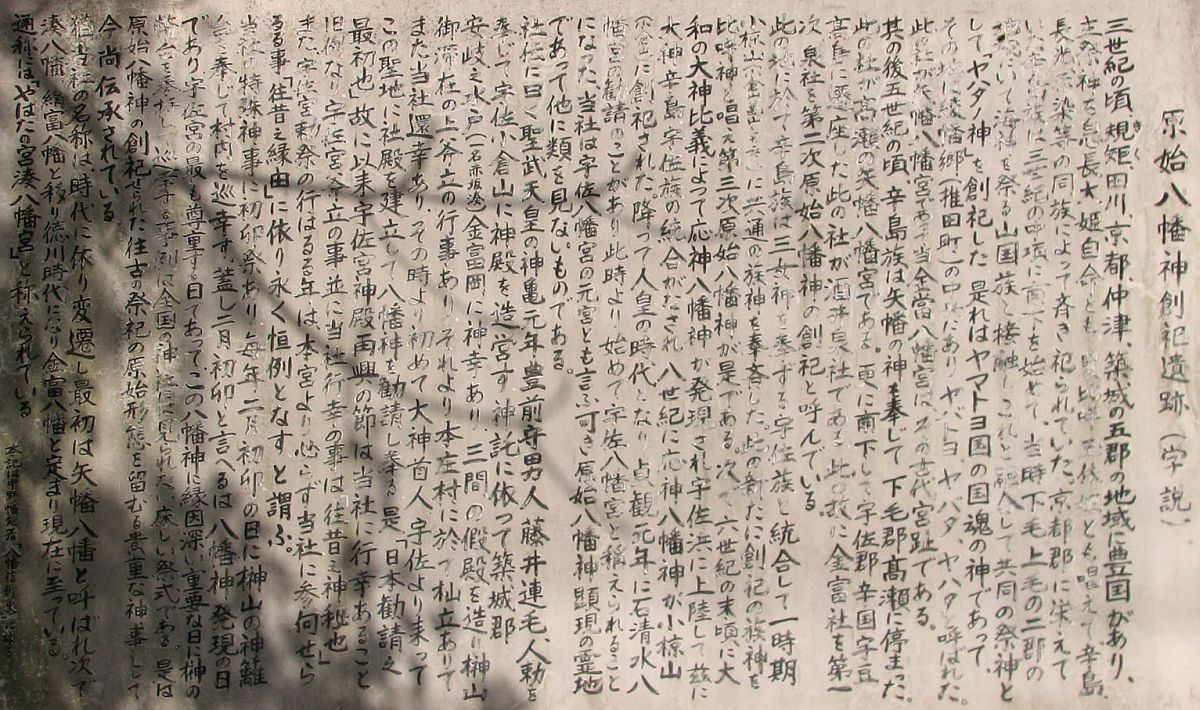 原始八幡神創祀遺跡(学説)
三世紀の頃、規矩、田川、京都、仲津、築城の五郡の地域に豊国があり、
主祭神を息長大姫自命とも唱えて辛島
長光赤染等の同族によって斉き祀られていた。京郡郡に栄えて
族は三世紀の中頃に南下を始めて、当時下毛上毛の二郡の
海神を祭る山国族と接触しこれと融入して共同の祭神と
して「ヤハタノ神」を創祀した 是れはヤマトヨ国の国魂の神であって
その地は綾幡郷(椎田町)の中央にあり ヤハトヨ ヤハダ、ヤハタと呼ばれた。
此の社が矢幡八幡宮であり当金富八幡宮は、その古代宮趾である。
其の後五世紀の頃 辛島族は矢幡の神を奉して、下毛郡高瀬に停まった。
此の社が高瀬の矢幡八幡宮である。更に南下して宇佐郡辛国宇豆
高島に遷座した此の社が酒井泉社である 此の故に金富社を第一
次 泉社を第二次原始八幡神の創祀と呼んでいる。
此の地に於て辛島族は三女神を奉ずる宇佐族と統合して一時期
に共通の族神を奉斉した。此の新たに創祀の族神を
比咩神と唱え第三次原始八幡神が是である。次で、六世紀の末頃に大
和の大神比義によって応神八幡神が発現され宇佐浜に上陸して茲に
大神辛島宇佐族の統合がなされ 八世紀に応神八幡神が小椋山
に創祀された、降って人皇の時代となり、貞観元年に石清水八
幡宮の勧請のことがあり此時より、始めて宇佐八幡宮と稱えられること
になった 当社は宇佐八幡宮の元宮とも言ふ可き原始八幡神顕現の霊地
であって他に類を見ないものである。
社伝に曰く聖武天皇の神亀元年豊前守男人藤井連毛人勅を
奉じて宇佐小倉山に神殿を造営す、神託に依って築城郡
安岐之水戸(一名赤坂湊)金富岡に神幸あり 三間の假殿を造り榊山
御滞在の上斧立の行事あり それより本庄村に於て杣立ありて
また当社還幸あり、その時より初めて大神首人宇佐より来って
この聖地に社殿を建立て八幡神を勧請し奉る是「日本勧請之
最初也」故に以来宇佐宮神殿再興の節は当社に行幸あること
旧例なり 宇佐宮斧立の事並に当社行幸の事は「往昔之神秘也」
また、宇佐宮勅祭の行はるる年は、本宮より必らず当社に参向せら
る事「往昔之縁由」に依り永く恒例となすと謂ふ。
当社の特殊神事に初卯祭あり、毎年二月初卯の日に榊山の神籬
を奉じて村内を巡幸す、蓋し二月初卯と言へるは八幡神発現の日
であり宇佐宮の最も尊重する日であってこの八幡神に縁因深い重要な日に榊の
全国の神社には見られない床しい祭式である。是は
原始八幡神の創祀せられた往古の祭祀の原始形態を留むる貴重な神事として
今尚伝承されている
猶当社の名称は時代に依り変遷し最初は矢幡八幡と呼ばれ次で
湊八幡、絹富八幡と移り徳川時代になり金富八幡と定まり現在に至っている
通称には「やはたの宮湊八幡宮」と称えられている